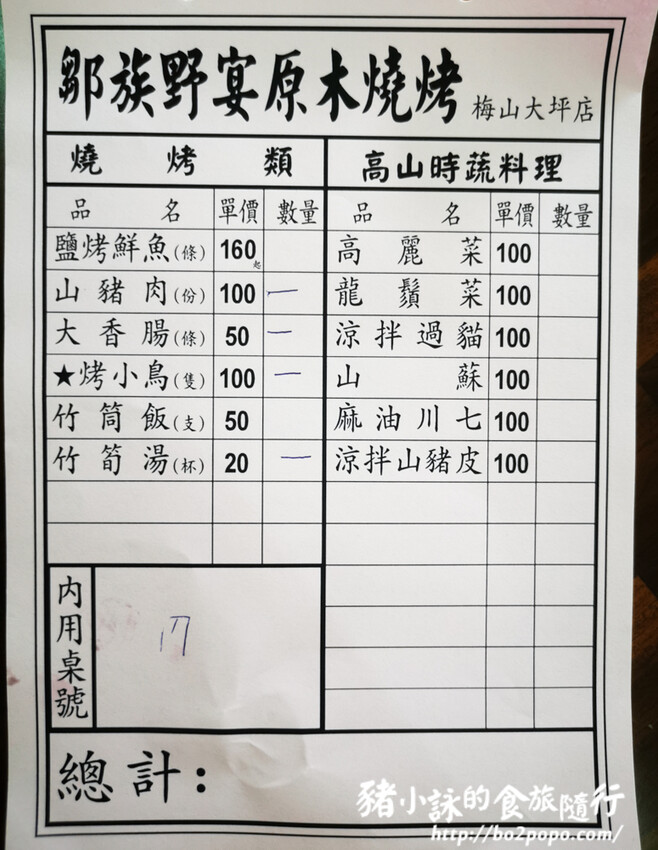 鄒族野宴原木燒烤 梅山大坪店
燒烤類 高山時蔬料理
品名 單價 數量 品名 單價 數量
鹽烤鮮魚(條) 160起 高麗菜 100
山豬肉(份) 100 一 龍鬚菜 100
大香腸(條) 50 一 涼拌過貓 100
★烤小鳥(隻) 100 一 山蘇 100
竹筒飯(支) 50 麻油川七 100
竹筍湯(杯) 20 一 涼拌山豬皮 100
內用桌號 17
總計：
豬小詠的食旅隨行
http://bo2popo.com/